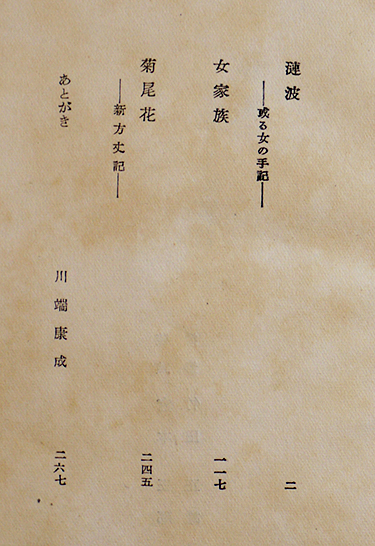 漣波
――或る女の手記――
二
女家族
一一七
菊尾花
――新方丈記――
二四五
あとがき 川端康成 二六七